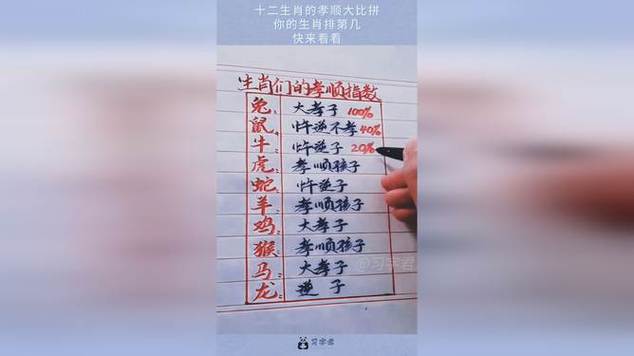 十二生肖的孝顺大比拼
你的生肖排第几
快来看看
生肖们的孝顺指数
兔：大孝子 100%
鼠：忤逆不孝 40%
牛：忤逆子 20%
虎：孝顺孩子
蛇：忤逆子
羊：孝顺孩子
鸡：大孝子
猴：孝顺孩子
马：大孝子
龙：逆子
@习字君
习字君